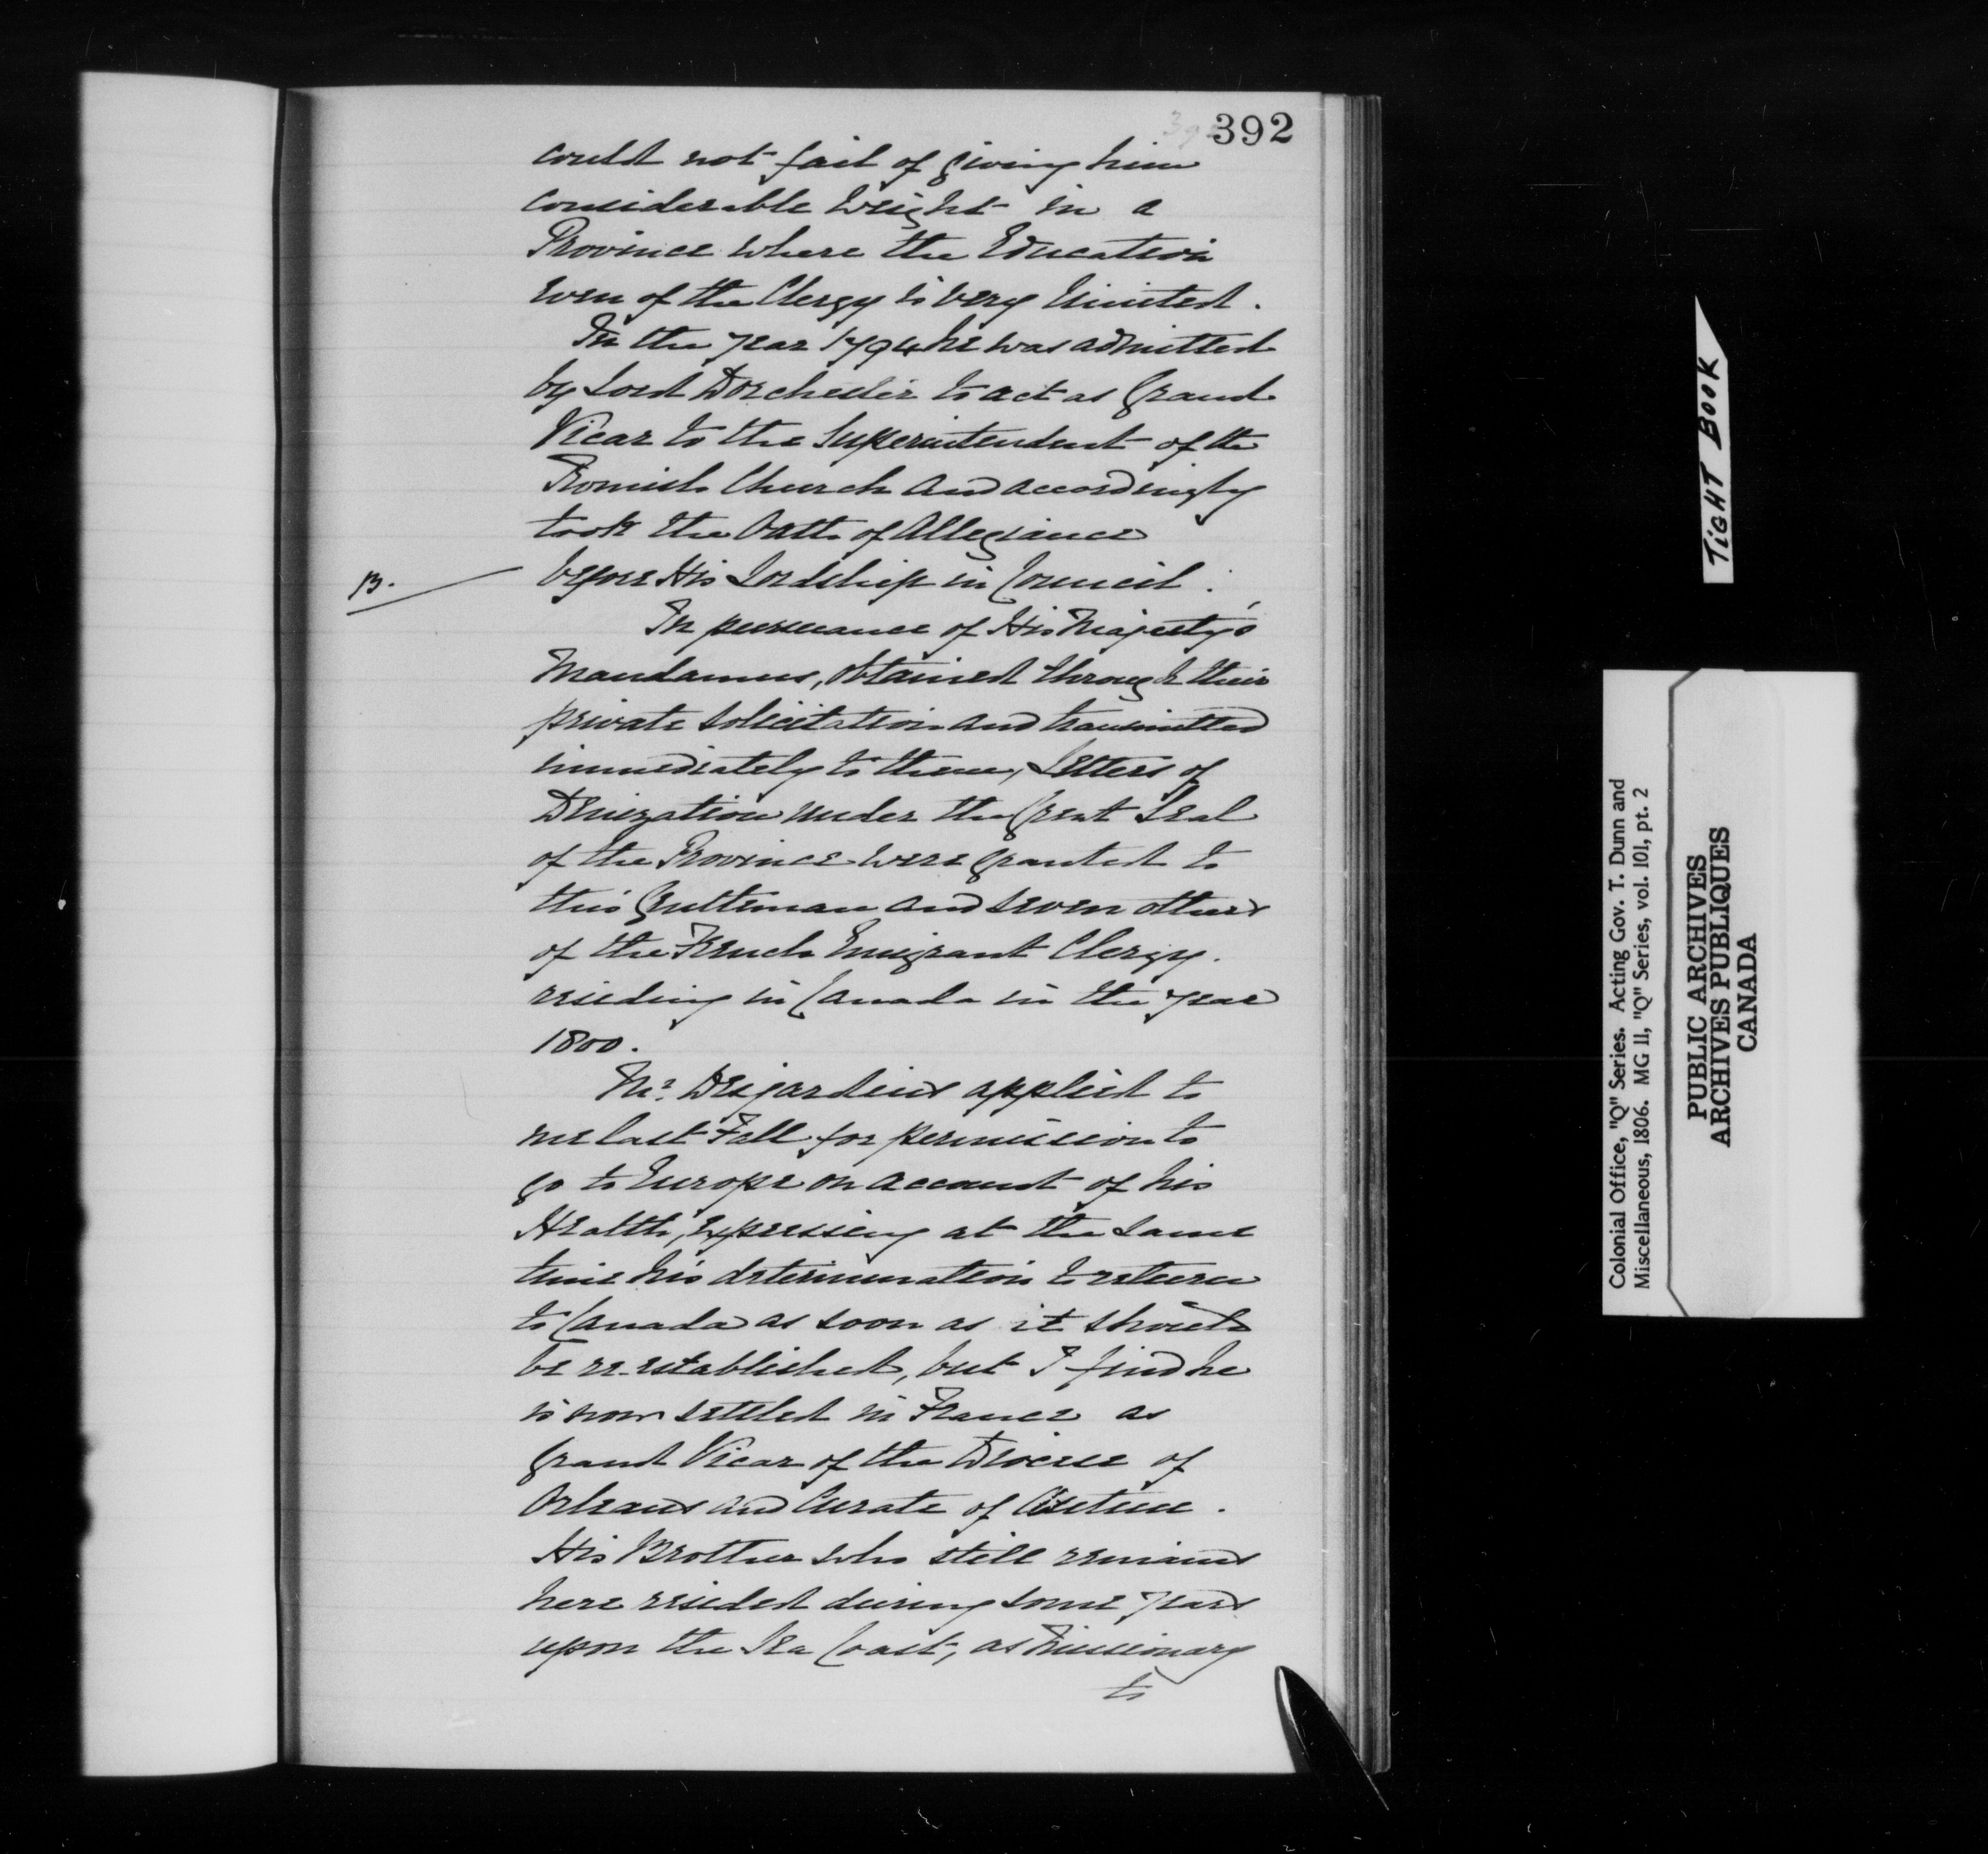 392
could not fail of giving him
considerable weight in a
Province where the Education
even of the Clergy is very limited.
In the year 1794 he was admitted
by Lord Dorchester to act as Grand
Vicar to the Superintendent of the
Romish Church and accordingly
took the Oath of Allegiance
B.
before His Lordship in Council.
In pursuance of His Majesty's
Mandamus, obtained through their
private solicitation and transmitted
immediately to them, Letters of
Denization under the Great Seal
of the Province were granted to
this Gentleman and seven others
of the French Emigrant Clergy.
residing in Canada in the year
1800.
Mr. Desjardins applied to
me last Fall for permission to
go to Europe on account of his
Health, expressing at the same
time his determination to return
to Canada as soon as it should
be re-established, but I find he
is now settled in France as
Grand Vicar of the Diocese of
Orleans and Curate of
His Brother who still remains
here resided during some years
upon the Sea Coast, as Missionary
to
TIGHT BOOK
Colonial Office, "Q" Series. Acting Gov. T. Dunn and
Miscellaneous, 1806. MG 11, "Q" Series, vol. 101, pt. 2
PUBLIC ARCHIVES
ARCHIVES PUBLIQUES
CANADA